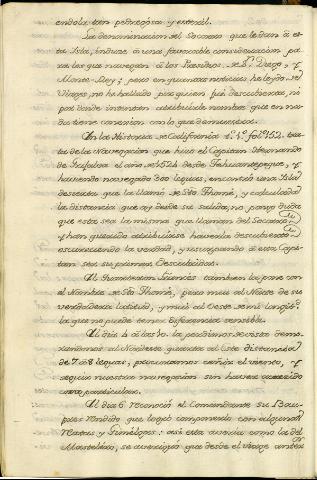 endola tan pedregosa y esteril.
La denominacion del Socorro que le dan á es-
ta Isla, induce á una favorable consideracion pa-
ra los que navegan á los Presidios de Sn. Diego, y
Monte-Rey; pero en quantas noticias he leydo de
Viages, no he hallado por quien fué descubierta, ni
por donde intentan atribuirle nombre que en na-
da tiene conexion con lo que demuestra.
En la Historia de California 1. fol. 152. tra-
ta de la Navegacion que hizo el Capitan Hernando
de Grijalva el año de 1534 desde Tehuantepeque, y
haviendo navegado 300 leguas, encontró una Isla
desierta que la llamó de Sto. Thomé, y calculada
la distancia que ay desde su salida, no pongo duda
que esta sea la misma que llaman del Socorro
y han querido atribuirse haverla descubierto
escureciendo la verdad, y usurpando á este Capi-
tan ser su primer Descubridor.
El Ynometran Frances tambien la pone con
el Nombre de Sto. Thomé, pero mui al Norte de su
verdadera latitud, y mui al Oeste de mi longd.
la que no puede tener diferencia sensible.
El dia 4 á las 10. la perdimos de vista demo-
randonos al Nordeste quarta al Este distancia
de 7 á 8 leguas; procuramos ceñir el viento, y
seguir nuestra navegacion sin haver acaecido
particular.
El dia 6 reconoció el Comandante su Bau-
pres rendido que logró componerlo con algunas
Reatas y Gimelgas: asi esta averia como la del
Mastelero, se averiguó que desde el Viage anter.